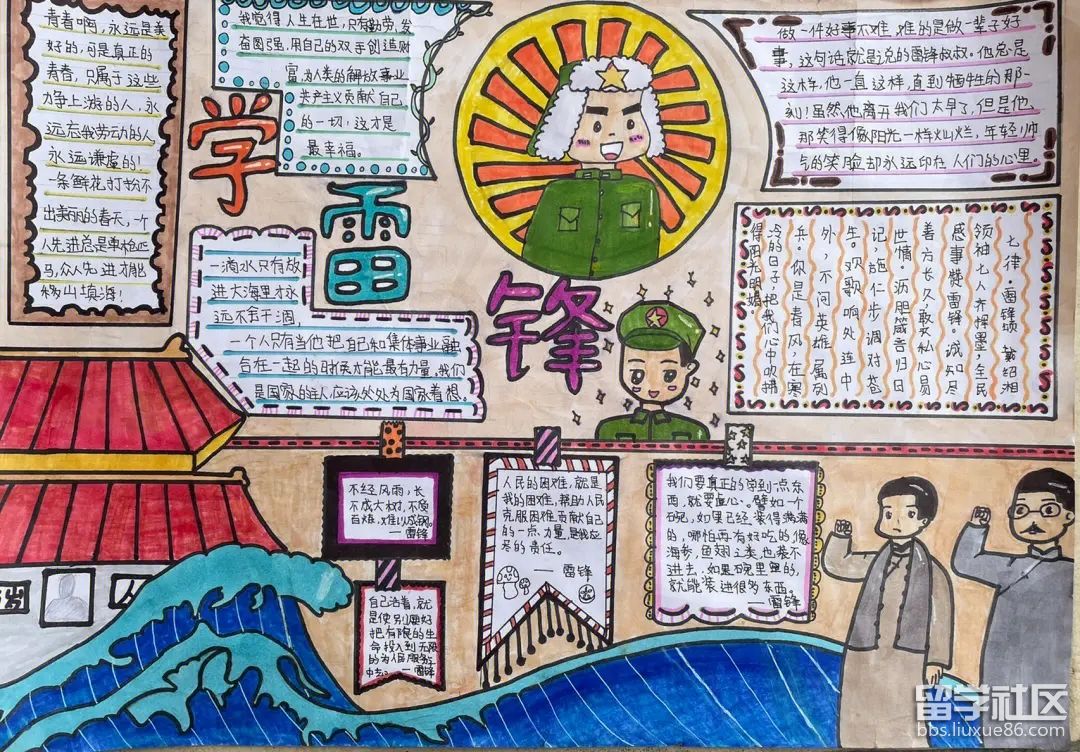 青春啊,永远是美
好的,可是真正的
青春,只属于这些
力争上游的人,永
远忘我劳动的人
永远谦虚的!
一条鲜花,打扮不
出美丽的春天,一个
人先进总是单枪匹
马,众人先进才能
移山填海!
我觉得人生在世,只有勤劳,发
奋图强,用自己的双手创造财
富,为人类的解放事业
共产主义贡献自己
的一切,这才是
最幸福。
做一件好事不难,难的是做一辈子好
事,这句话就是说的雷锋叔叔。他总是
这样,他一直这样,直到牺牲的那一
刻!虽然他离开我们太早了,但是他
那笑得像阳光一样灿烂,年轻,帅
气的笑脸却永远印在人们的心里。
学
雷
锋
一滴水只有放
进大海里才永
远不会干涸,
一个人只有当他把自己和集体事业融
合在一起的时候才能最有力量,我们
是国家的主人应该处处为国家着想
七律·雷锋颂
领袖七人齐挥墨,全民
感事赞雷锋。诚知尽
善方长久,敢效私心员
世情。沥胆箴告归日
记,施仁步调对苍
生。欢歌响处连中
外,不问英雄属列
兵。你是春风,在寒
冷的日子,把我们心中吹拂
得阳光明媚。
不经风雨,长
不成大树,不受
百炼,难以成钢。
——雷锋
自己活着,就
是使别人更好
把有限的生
命投入到无限
的为人民服务
中去。—雷锋
人民的困难,就是
我的困难,帮助人民
克服困难,贡献自己
的一点力量,是我应
尽的责任。
——雷锋
我们要真正的学到一点东
西,就要虚心。譬如一个
碗,如果已经装得满满
的,哪怕再有好吃的像
海参,鱼翅之类,也装不
进去,如果碗里是空的,
就能装进很多东西。
——雷锋
留学社区
bbs.liuxue86.com